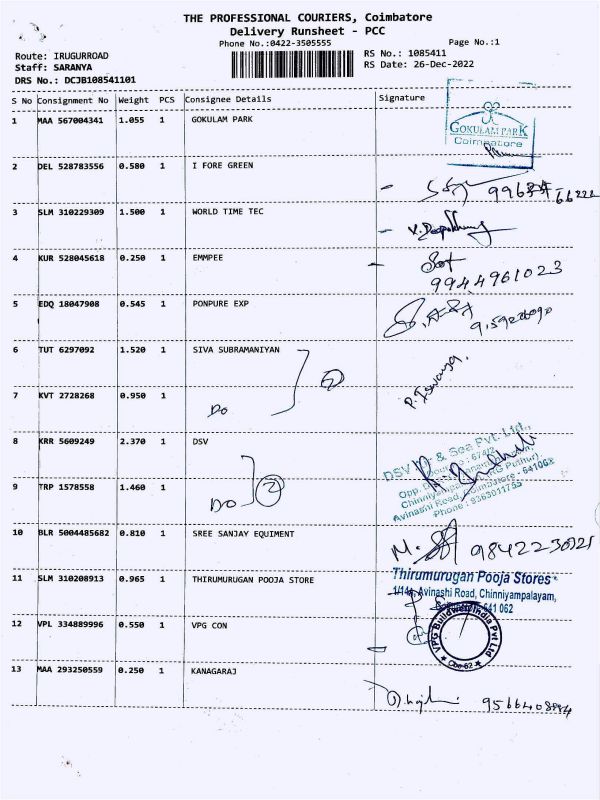 THE PROFESSIONAL COURIERS, Coimbatore
Delivery Runsheet - PCC
Phone No.:0422-3505555
Page No.:1
Route: IRUGURROAD
Staff: SARANYA
DRS No.: DCJB108541101
RS No.: 1085411
RS Date: 26-Dec-2022
S No Consignment No Weight PCS Consignee Details Signature
1 MAA 567004341 1.055 1 GOKULAM PARK
GOKULAM PARK
Coimbatore
2 DEL 528783556 0.580 1 I FORE GREEN
3 SLM 310229309 1.500 1 WORLD TIME TEC
4 KUR 528045618 0.250 1 EMMPEE
9944961023
5 EDQ 18047908 0.545 1 PONPURE EXP
6 TUT 6297092 1.520 1 SIVA SUBRAMANIYAN
2
P. Iswarya.
7 KVT 2728268 0.950 1
Do
8 KRR 5609249 2.370 1 DSV
DSV & Sea Pvt. Ltd.,
Opp.
Chinniyam
Avinashi Road, Coimbatore - 641062
Phone : 9363011755
9 TRP 1578558 1.460 1
Do 2
10 BLR 5004485682 0.810 1 SREE SANJAY EQUIMENT
11 SLM 310208913 0.965 1 THIRUMURUGAN POOJA STORE
Thirumurugan Pooja Stores
Avinashi Road, Chinniyampalayam,
641 062
12 VPL 334889996 0.550 1 VPG CON
VPG Buildwell India Pvt Ltd
Cbe-62
13 MAA 293250559 0.250 1 KANAGARAJ